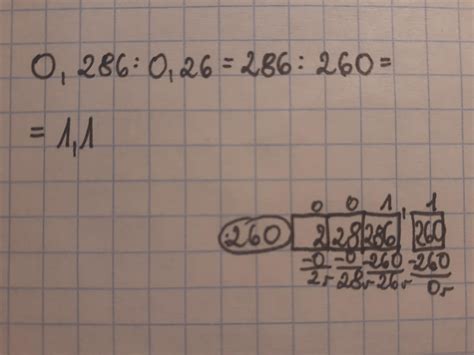 0,286:0,26=286:260=
=1,1
0 0 1,1
:260 2 28 286 260
-0 -0 -260 -260
2r 28r 26r 0r